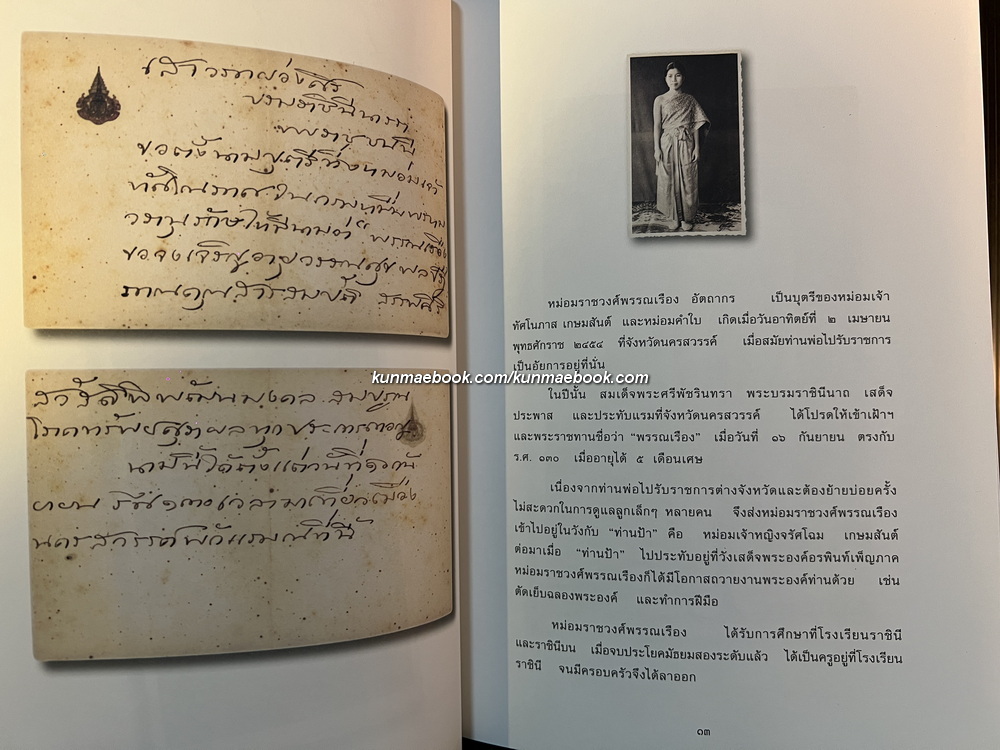 เสาวภาผ่องศรี
บรมราชินีนารถ
พระราชชนนี
ขอตั้งนามบุตรีของหม่อมเจ้า
ให้มีนามว่า "พรรณเรือง
ขอจงเจริญอายุวรรณสุขพล
สวัสดิพิพัฒนมงคล สมบูรณ
นามนี้ได้ตั้งแต่วันที่ ๑๖ กัน
ยายน
นครสวรรค์
kunmaebook.com/kunmaebook.com
หม่อมราชวงศ์พรรณเรือง อัตถากร เป็นบุตรีของหม่อมเจ้า
ทัศโนภาส เกษมสันต์ และหม่อมคำใบ เกิดเมื่อวันอาทิตย์ที่ ๒ เมษายน
พุทธศักราช ๒๔๕๔ ที่จังหวัดนครสวรรค์ เมื่อสมัยท่านพ่อไปรับราชการ
เป็นอัยการอยู่ที่นั่น
ในปีนั้น สมเด็จพระศรีพัชรินทรา พระบรมราชินีนาถ เสด็จ
ประพาส และประทับแรมที่จังหวัดนครสวรรค์ ได้โปรดให้เข้าเฝ้าฯ
และพระราชทานชื่อว่า "พรรณเรือง" เมื่อวันที่ ๑๖ กันยายน ตรงกับ
ร.ศ. ๑๓๐ เมื่ออายุได้ ๕ เดือนเศษ
เนื่องจากท่านพ่อไปรับราชการต่างจังหวัดและต้องย้ายบ่อยครั้ง
ไม่สะดวกในการดูแลลูกเล็กๆ หลายคน จึงส่งหม่อมราชวงศ์พรรณเรือง
เข้าไปอยู่ในวังกับ "ท่านป้า" คือ หม่อมเจ้าหญิงจรัศโฉม เกษมสันต์
ต่อมาเมื่อ "ท่านป้า" ไปประทับอยู่ที่วังเสด็จพระองค์อรพินท์เพ็ญภาค
หม่อมราชวงศ์พรรณเรืองก็ได้มีโอกาสถวายงานพระองค์ท่านด้วย เช่น
ตัดเย็บฉลองพระองค์ และทำการฝีมือ
หม่อมราชวงศ์พรรณเรือง ได้รับการศึกษาที่โรงเรียนราชินี
และราชินีบน เมื่อจบประโยคมัธยมสองระดับแล้ว ได้เป็นครูอยู่ที่โรงเรียน
ราชินี จนมีครอบครัวจึงได้ลาออก
๑๓